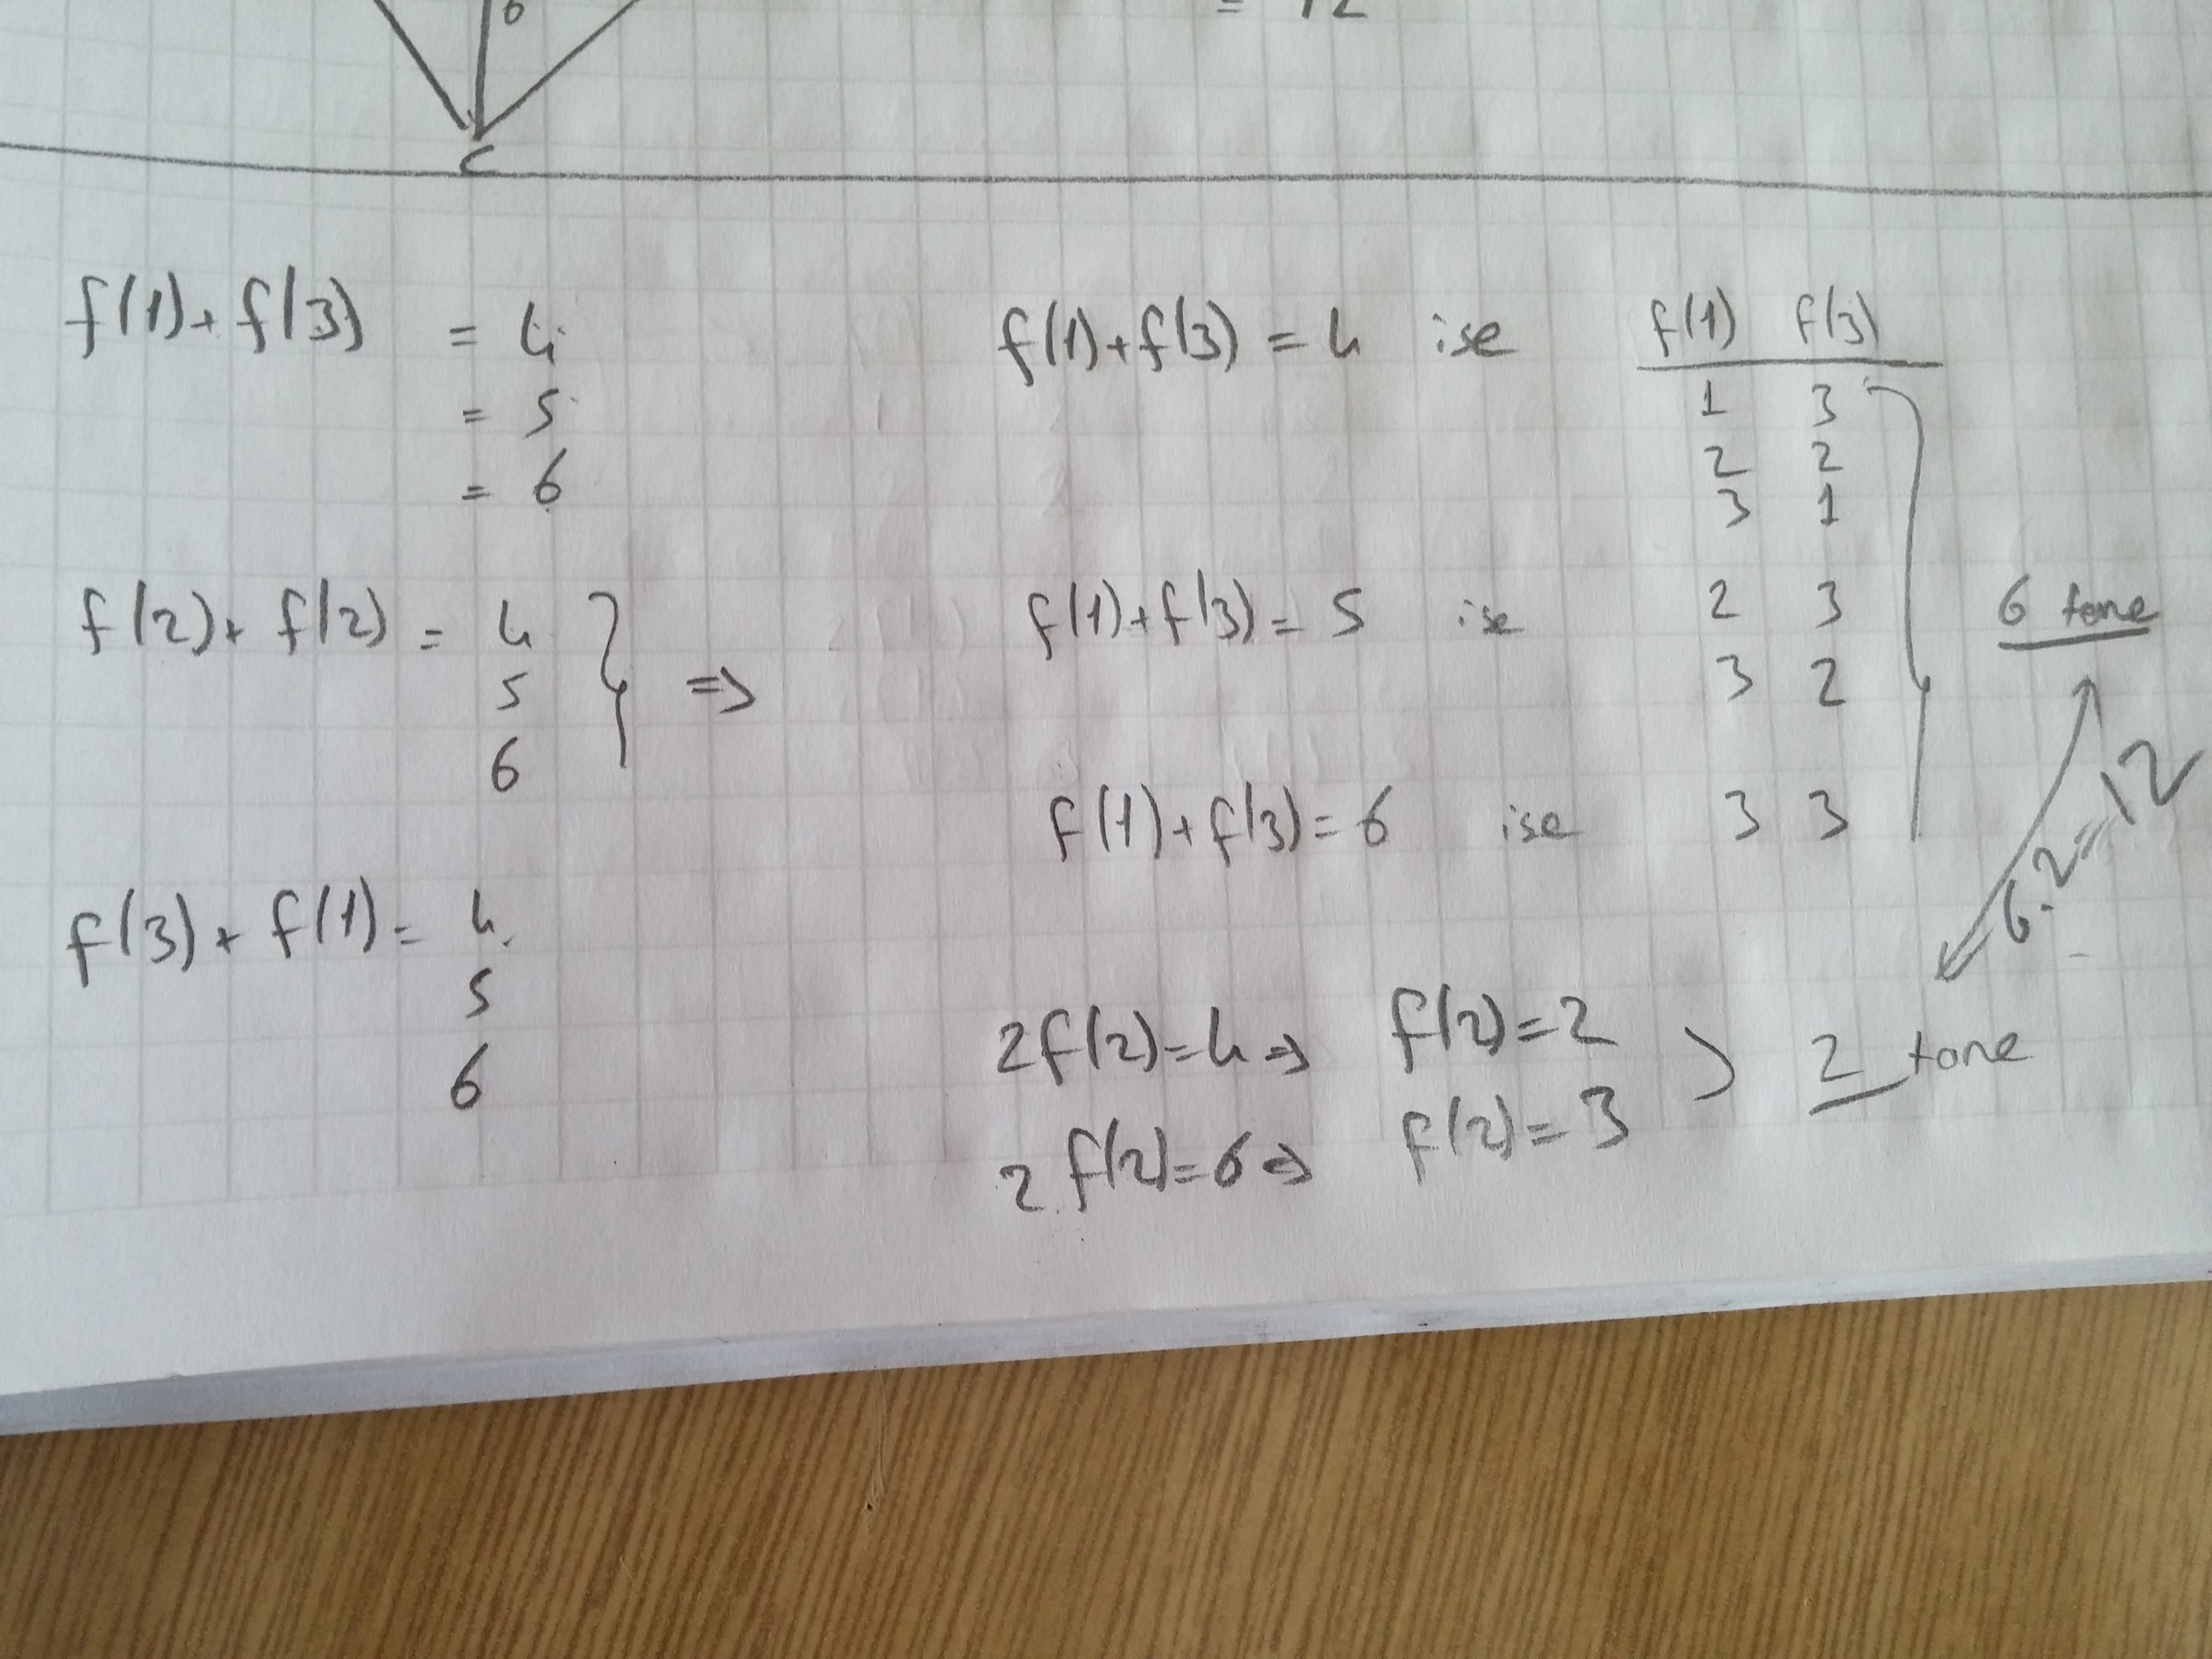 6
= 12
C
f(1)+f(3) = 4
= 5
= 6
f(2)+f(2) = 4
5
6
} =>
f(3)+f(1) = 4
5
6
f(1) f(3)
f(1)+f(3) = 4 ise
1 3
2 2
3 1
f(1)+f(3) = 5 ise
2 3
3 2
6 tane
f(1)+f(3) = 6 ise
3 3
6.2=12
2f(2)=4 => f(2)=2
2f(2)=6 => f(2)=3
) 2 tane